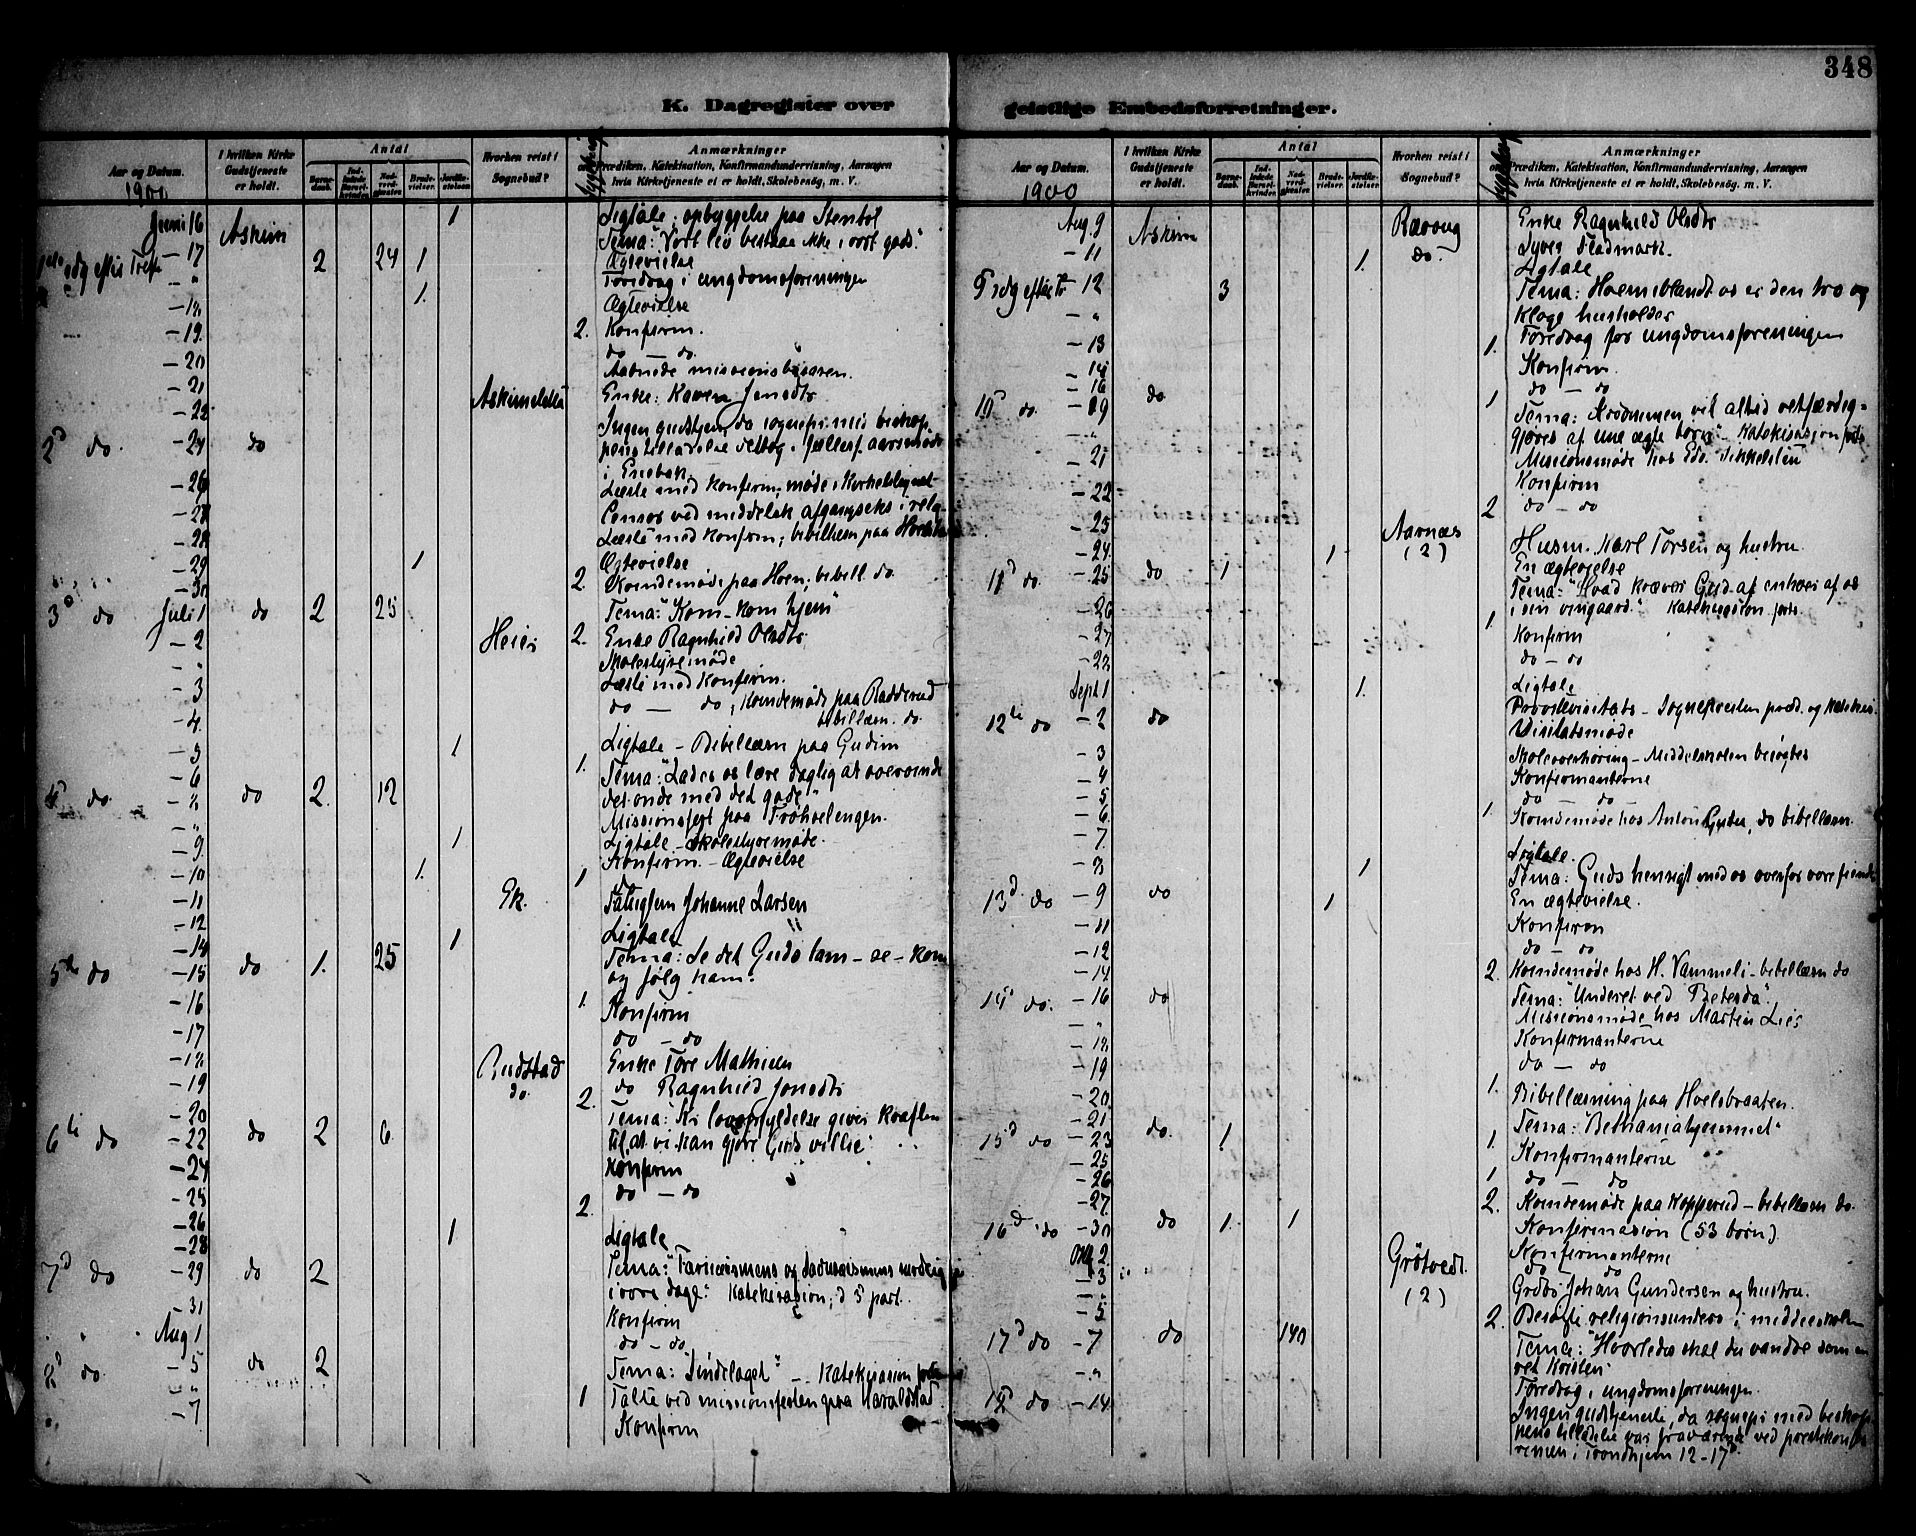 348
K. Dagregister over
geistlige Embedsforretninger.
Aar og Datum.
1900
I hvilken Kirke Gudstjeneste er holdt.
Antal
Barnedaab.
Indledede Barselkvinder.
Nadverdgjæster.
Brudevielser.
Jordfæstelser.
Hvorhen reist i Sognebud?
Anmærkninger
Prædiken, Katekisation, Konfirmandundervisning, Aarsagen
hvis Kirketjeneste ei er holdt, Skolebesøg, m. V.
Juni 16 Askim 1 Ligtale: opbyggelse paa Stenbøl
- 17 2 24 1 Tema: "Vort liv bestaar ikke i vort gods."
Ægtevielse
- " Foredrag i ungdomsforeningen
- 18 1. Ægtevielse
- 19. 2. Konfirm.
- 20 do - do.
- 21 Aabnede missionsbasaren.
- 22 Enke: Karen Jensdtr
2d do. - 24 do Ingen gudstjen. da sognepr. med biskop-
pens tilladelse deltog i fællesf. aarsmøde
i Enebak
- 26 Læste med konfirm; møde i
- 27 Censor ved middelsk. afgangseks. i relig.
- 28 Læste med konfirm; bibellæsn paa
- 29 1 Ægtevielse
- 30 2. Kvindemøde paa Hoen; bibell. do.
3d do Juli 1 do 2 25 Tema: "Kom - kom hjem"
- 2 Heier 2. Enke Ragnhild Olsdtr
- " Skolestyremøde
- 3 Læste med konfirm.
- 4. do - do, kvindemøde paa Radderud
bibellæsn. do.
- 5 1 Ligtale - Bibellæsn paa Gudim
- 6 1.
do - 8 do 2. 12 Tema: "Lader os lære daglig at overvinde
det onde med det gode"
- " Missionsfest paa Frøhvelengen.
- 9. 1 Ligtale - Skolestyremøde.
- 10 1. Konfirm. - Ægtevielse
- 11 1 do
- 12 Ek. Fattiglem Johanne Larsen
- 14 1 Ligtale
5te do - 15 do 1. 25 Tema: Se det Guds lam - se - kom
og følg ham!
- 16 1. Konfirm
- 17 do - do
- 18 Rudstad Enke Tore Mathisen
- 19 do. do Ragnhild Jensdtr
- 20 2.
6te do - 22 do 2 6 Tema: "Kr. lovopfyldelse giver kraften
til, at vi kan gjøre Guds villie"
- 24 Konfirm
- 25 do - do
- 26 2.
- 28 1 Ligtale
7d do - 29 do 2 Tema: "Farisæismens og sadusæismens
i vore dage." Katekisasion, 3 5 part.
- 31 Konfirm
Aug 1 do - do
8d do - 5 do 2 Tema: "Sindelaget" - Katekisasion
- " 1 Talte ved missionsfesten paa Haraldstad
- 7 Konfirm
Aar og Datum.
1900
I hvilken Kirke Gudstjeneste er holdt.
Antal
Barnedaab.
Indledede Barselkvinder.
Nadverdgjæster.
Brudevielser.
Jordfæstelser.
Hvorhen reist i Sognebud?
Anmærkninger
Prædiken, Katekisation, Konfirmandundervisning, Aarsagen
hvis Kirketjeneste ei er holdt, Skolebesøg, m. V.
Aug. 9 Askim Enke Ragnhild Olsdtr
- 11 1. do. Syver Fladmark.
Ligtale
9 sdg efter Tr - 12 3 Tema: Hvem iblandt os er den tro og
kloge husholder
- " Foredrag for ungdomsforeningen
- 13 1. Konfirm.
- 14 do - do
- 16
10d do. - 19 do 1 Tema: Visdommen vil altid retfærdig-
gjøres af sine ægte børn". Katekisasjon
- " Missionsmøde hos Edv. Sikkelsten
- 21 Konfirm
- 22 2 do - do
- 23 Aarnæs (2) Husm. Karl Torsen og hustru.
- 24. 1 En ægtevielse
11d do. - 25 do 1 Tema: "Hvad kræver Gud af enhver af os
i sin vingaard." Katekisasion
- 26 1.
- 27 Konfirm
- 28 do - do
Sept 1 1. Ligtale
12te do - 2 do Provstevisitats - Sognepresten præd. og katekis.
Visitatsmøde
- 3 Skoleoverhøring - Middelskolen besøgtes
- 4 Konfirmanterne
- 5 do - do
- 6. 1. Kvindemøde hos Anton, do bibellæsn.
- 7.
- 8 1 Ligtale.
13d do - 9 do 1 Tema: Guds hensigt med os ovenfor vore fiender
En ægtevielse.
- 11 Konfirm
- 12 do - do
- 14 2. Kvindemøde hos H. Vammeli - bibellæsn do
14d do. - 16 do Tema: "Underet ved Betesda".
- " Missionsmøde hos Martin Lies
- 18 Konfirmanterne
- 19 do - do
- 20. 1.
- 21 Bibellæsning paa Hvelsbraaten.
15d do - 23 do. 1. 1. Tema: "Bethaniahjemmet"
- 25 Konfirmanterne
- 26 1 do - do
- 27. 2. Kvindemøde paa Kopperud - bibellæsn do.
16d do - 30 do 1. 1 Konfirmasion (53 børn).
Okt. 2. Konfirmanterne
- 3 do - do
- " Grøtvedt. (2) Grdbr. Johan Gundersen og hustru.
- 5 2. Besøgte religionsunderv. i middelskolen
17d do - 7 do 140 Tema: "Hvorledes skal du vandre som en
ret kristen"
- " Foredrag i ungdomsforeningen.
18d do - 14 Ingen gudstjeneste, da sognepr. med biskop-
pens tilladelse var fraværende ved prestekonfe-
rensen i Trondhjem 12-17d